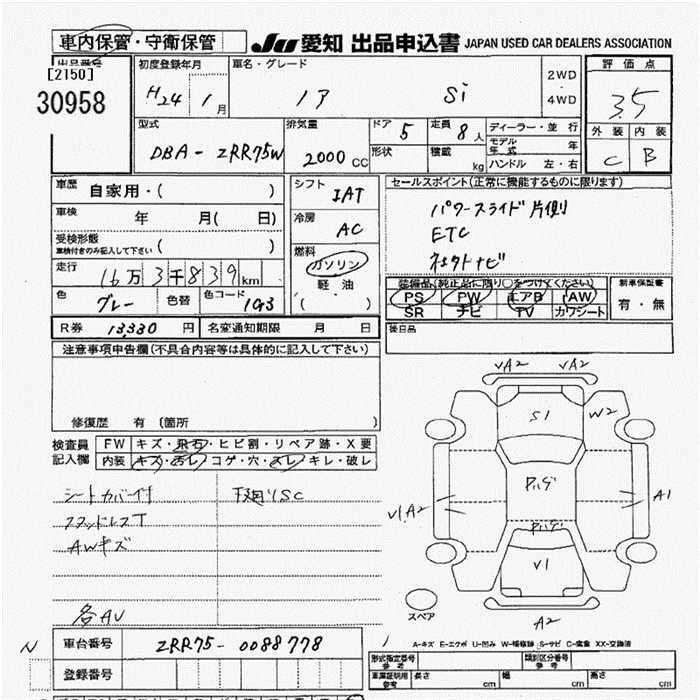 車内保管・守衛保管 JU 愛知 出品申込書 JAPAN USED CAR DEALERS ASSOCIATION
出品番号 [2150] 30958
初度登録年月 H24年 1月
車名・グレード ノア Si
2WD・4WD
評価点 3.5
外装 内装
C B
型式 DBA-ZRR75W
排気量 2000CC
ドア 5
形状
定員 8人
積載 kg
ディーラー・並行
モデル年式 年
ハンドル 左・右
車歴 自家用・( )
車検 年 月( 日)
受検形態 車検付きのみ記入して下さい ( )
走行 16万3千839km
色 グレー 色替 色コード 1G3
シフト IAT
冷房 AC
燃料 ガソリン
軽・油
( )
セールスポイント(正常に機能するものに限ります)
パワースライド片側
ETC
装備品(純正品に限り○をつけてください)
PS PW エアB AW
SR ナビ TV カワシート
新車保証書 有・無
後日品
R券 13,330円 名変通知期限 月 日
注意事項申告欄(不具合内容等は具体的に記入して下さい)
修復歴 有(箇所 )
検査員記入欄
FW キズ・飛石・ヒビ割・リペア跡・X要
内装 キズ・汚レ・コゲ・穴・スレ・キレ・破レ
シートカバー付 下廻りSC
スタッドレスT
AWキズ
各AU
N
車台番号 ZRR75-0088778
登録番号
VA2 VA2
S1 W2
PNガラ
V1A2 A1
V1
A2
スペア
A-キズ E-エクボ U-凹み W-補修跡 S-サビ C-腐食 XX-交換済
形式指定番号 参考 類別区分番号 参考
車庫証明用 参考 長さ cm 幅 cm 高さ cm